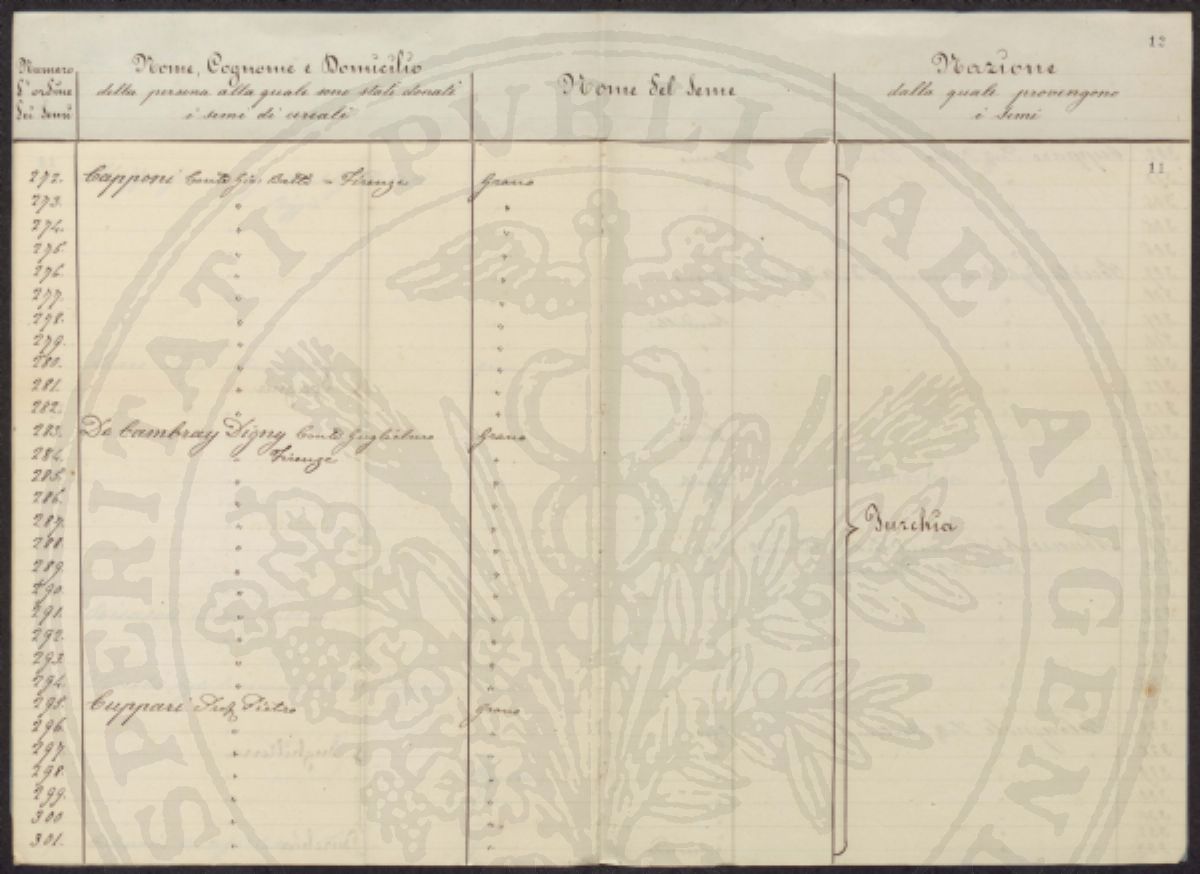 12
Numero d'ordine dei Semi
Nome, Cognome e Domicilio
della persona alla quale sono stati donati
i semi di cereali
Nome del Seme
Nazione
dalla quale provengono
i Semi
11
272. Capponi Conte Gio: Batta - Firenze Grano
273. " "
274. " "
275. " "
276. " "
277. " "
278. " "
279. " "
280. " "
281. " "
282. " "
283. De Cambray Digny Conte Guglielmo Grano
284. " Firenze "
285. " "
286. " "
287. " " Turchia
288. " "
289. " "
290. " "
291. " "
292. " "
293. " "
294. " "
295. Cuppari Prof. Pietro Grano
296. " "
297. " "
298. " "
299. " "
300 " "
301. " "
SPERITATI PVBLICAE AVGEN